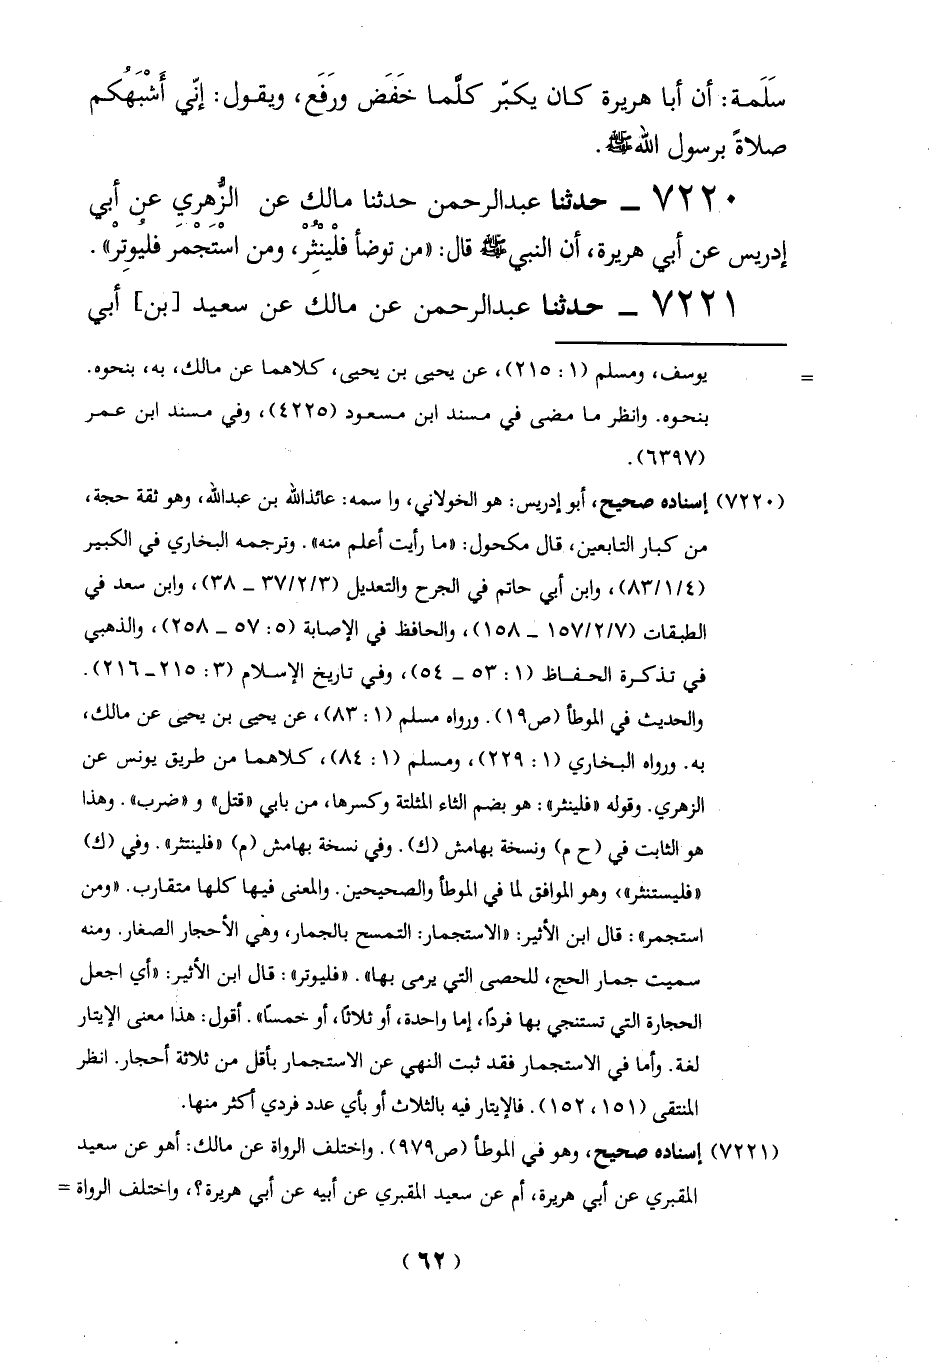 سَلَمة: أن أبا هريرة كان يكبّر كلَّما خَفَض ورَفَع، ويقول: إنّي أَشْبَهُكم
صلاةً برسول الله ﷺ.
٧٢٢٠ ـ حدثنا عبدالرحمن حدثنا مالك عن الزُّهري عن أبي
إدريس عن أبي هريرة، أن النبي ﷺ قال: «من توضأ فلْيَنْثُِرْ، ومن اسْتَجْمَر فليُوتِرْ».
٧٢٢١ ـ حدثنا عبدالرحمن عن مالك عن سعيد [بن] أبي
= يوسف، ومسلم (١: ٢١٥)، عن يحيى بن يحيى، كلاهما عن مالك، به، بنحوه.
بنحوه. وانظر ما مضى في مسند ابن مسعود (٤٢٢٥)، وفي مسند ابن عمر
(٦٣٩٧).
(٧٢٢٠) إسناده صحيح، أبو إدريس: هو الخولاني، وا سمه: عائذالله بن عبدالله، وهو ثقة حجة،
من كبار التابعين، قال مكحول: «ما رأيت أعلم منه». وترجمه البخاري في الكبير
(٨٣/١/٤)، وابن أبي حاتم في الجرح والتعديل (٣٧/٢/٣ ـ ٣٨)، وابن سعد في
الطبقات (١٥٧/٢/٧ ـ ١٥٨)، والحافظ في الإصابة (٥: ٥٧ ـ ٢٥٨)، والذهبي
في تذكرة الحفاظ (١: ٥٣ ـ ٥٤)، وفي تاريخ الإسلام (٣: ٢١٥ـ ٢١٦).
والحديث في الموطأ (ص١٩). ورواه مسلم (١: ٨٣)، عن يحيى بن يحيى عن مالك،
به. ورواه البخاري (١: ٢٢٩)، ومسلم (١: ٨٤)، كلاهما من طريق يونس عن
الزهري. وقوله «فلينثر»: هو بضم الثاء المثلثة وكسرها، من بابي «قتل» و«ضرب». وهذا
هو الثابت في (ح م) ونسخة بهامش (ك). وفي نسخة بهامش (م) «فلينتثر». وفي (ك)
«فليستنثر»، وهو الموافق لما في الموطأ والصحيحين. والمعنى فيها كلها متقارب. «ومن
استجمر»: قال ابن الأثير: «الاستجمار: التمسح بالجمار، وهي الأحجار الصغار. ومنه
سميت جمار الحج، للحصى التي يرمى بها». «فليوتر»: قال ابن الأثير: «أي اجعل
الحجارة التي تستنجي بها فرداً، إما واحدة، أو ثلاثاً، أو خمساً». أقول: هذا معنى الإيتار
لغة. وأما في الاستجمار فقد ثبت النهي عن الاستجمار بأقل من ثلاثة أحجار. انظر
المنتقى (١٥١، ١٥٢). فالإيتار فيه بالثلاث أو بأي عدد فردي أكثر منها.
(٧٢٢١) إسناده صحيح، وهو في الموطأ (ص٩٧٩). واختلف الرواة عن مالك: أهو عن سعيد
المقبري عن أبي هريرة، أم عن سعيد المقبري عن أبيه عن أبي هريرة؟، واختلف الرواة =
(٦٢)